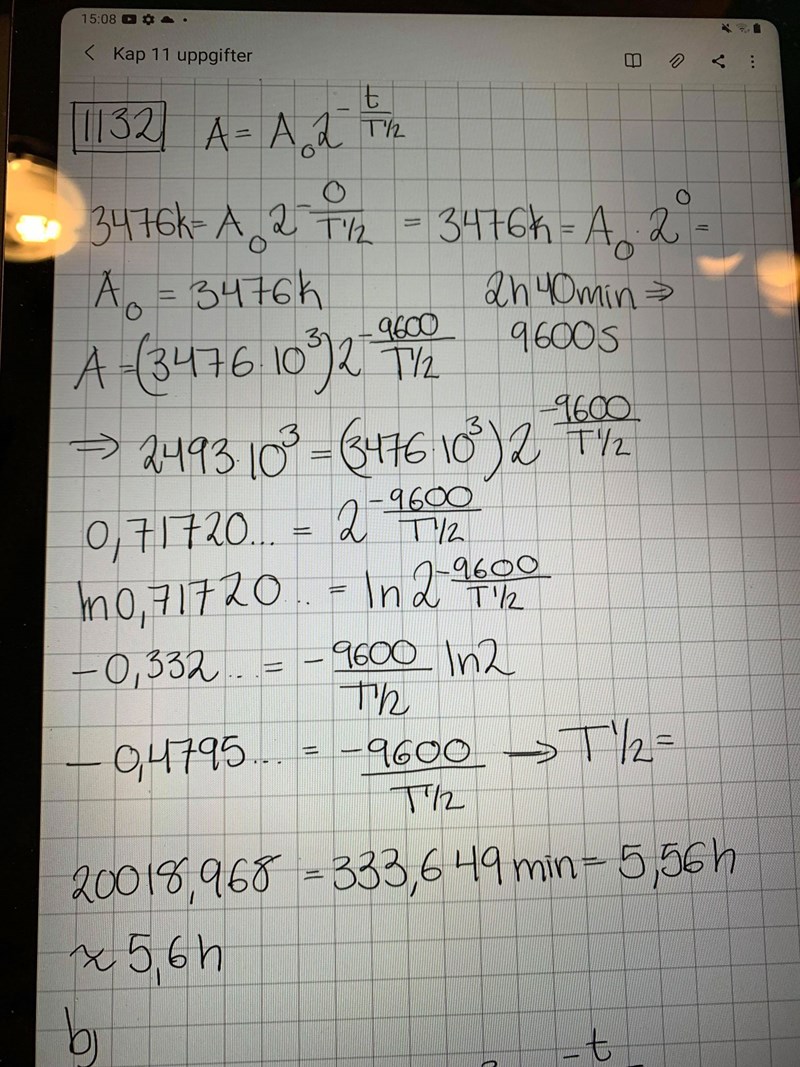 15:08
Kap 11 uppgifter
1132 A = A₀2^(-t/T½)
3476k = A₀2^(-0/T½) = 3476k = A₀·2⁰ =
A₀ = 3476k 2h 40min ⇒
9600s
A = (3476·10³)2^(-9600/T½)
⇒ 2493·10³ = (3476·10³)2^(-9600/T½)
0,71720... = 2^(-9600/T½)
ln0,71720... = ln2^(-9600/T½)
-0,332... = -9600/T½ ln2
-0,4795... = -9600/T½ → T½ =
20018,968 = 333,649min = 5,56h
≈ 5,6h
b)
-t